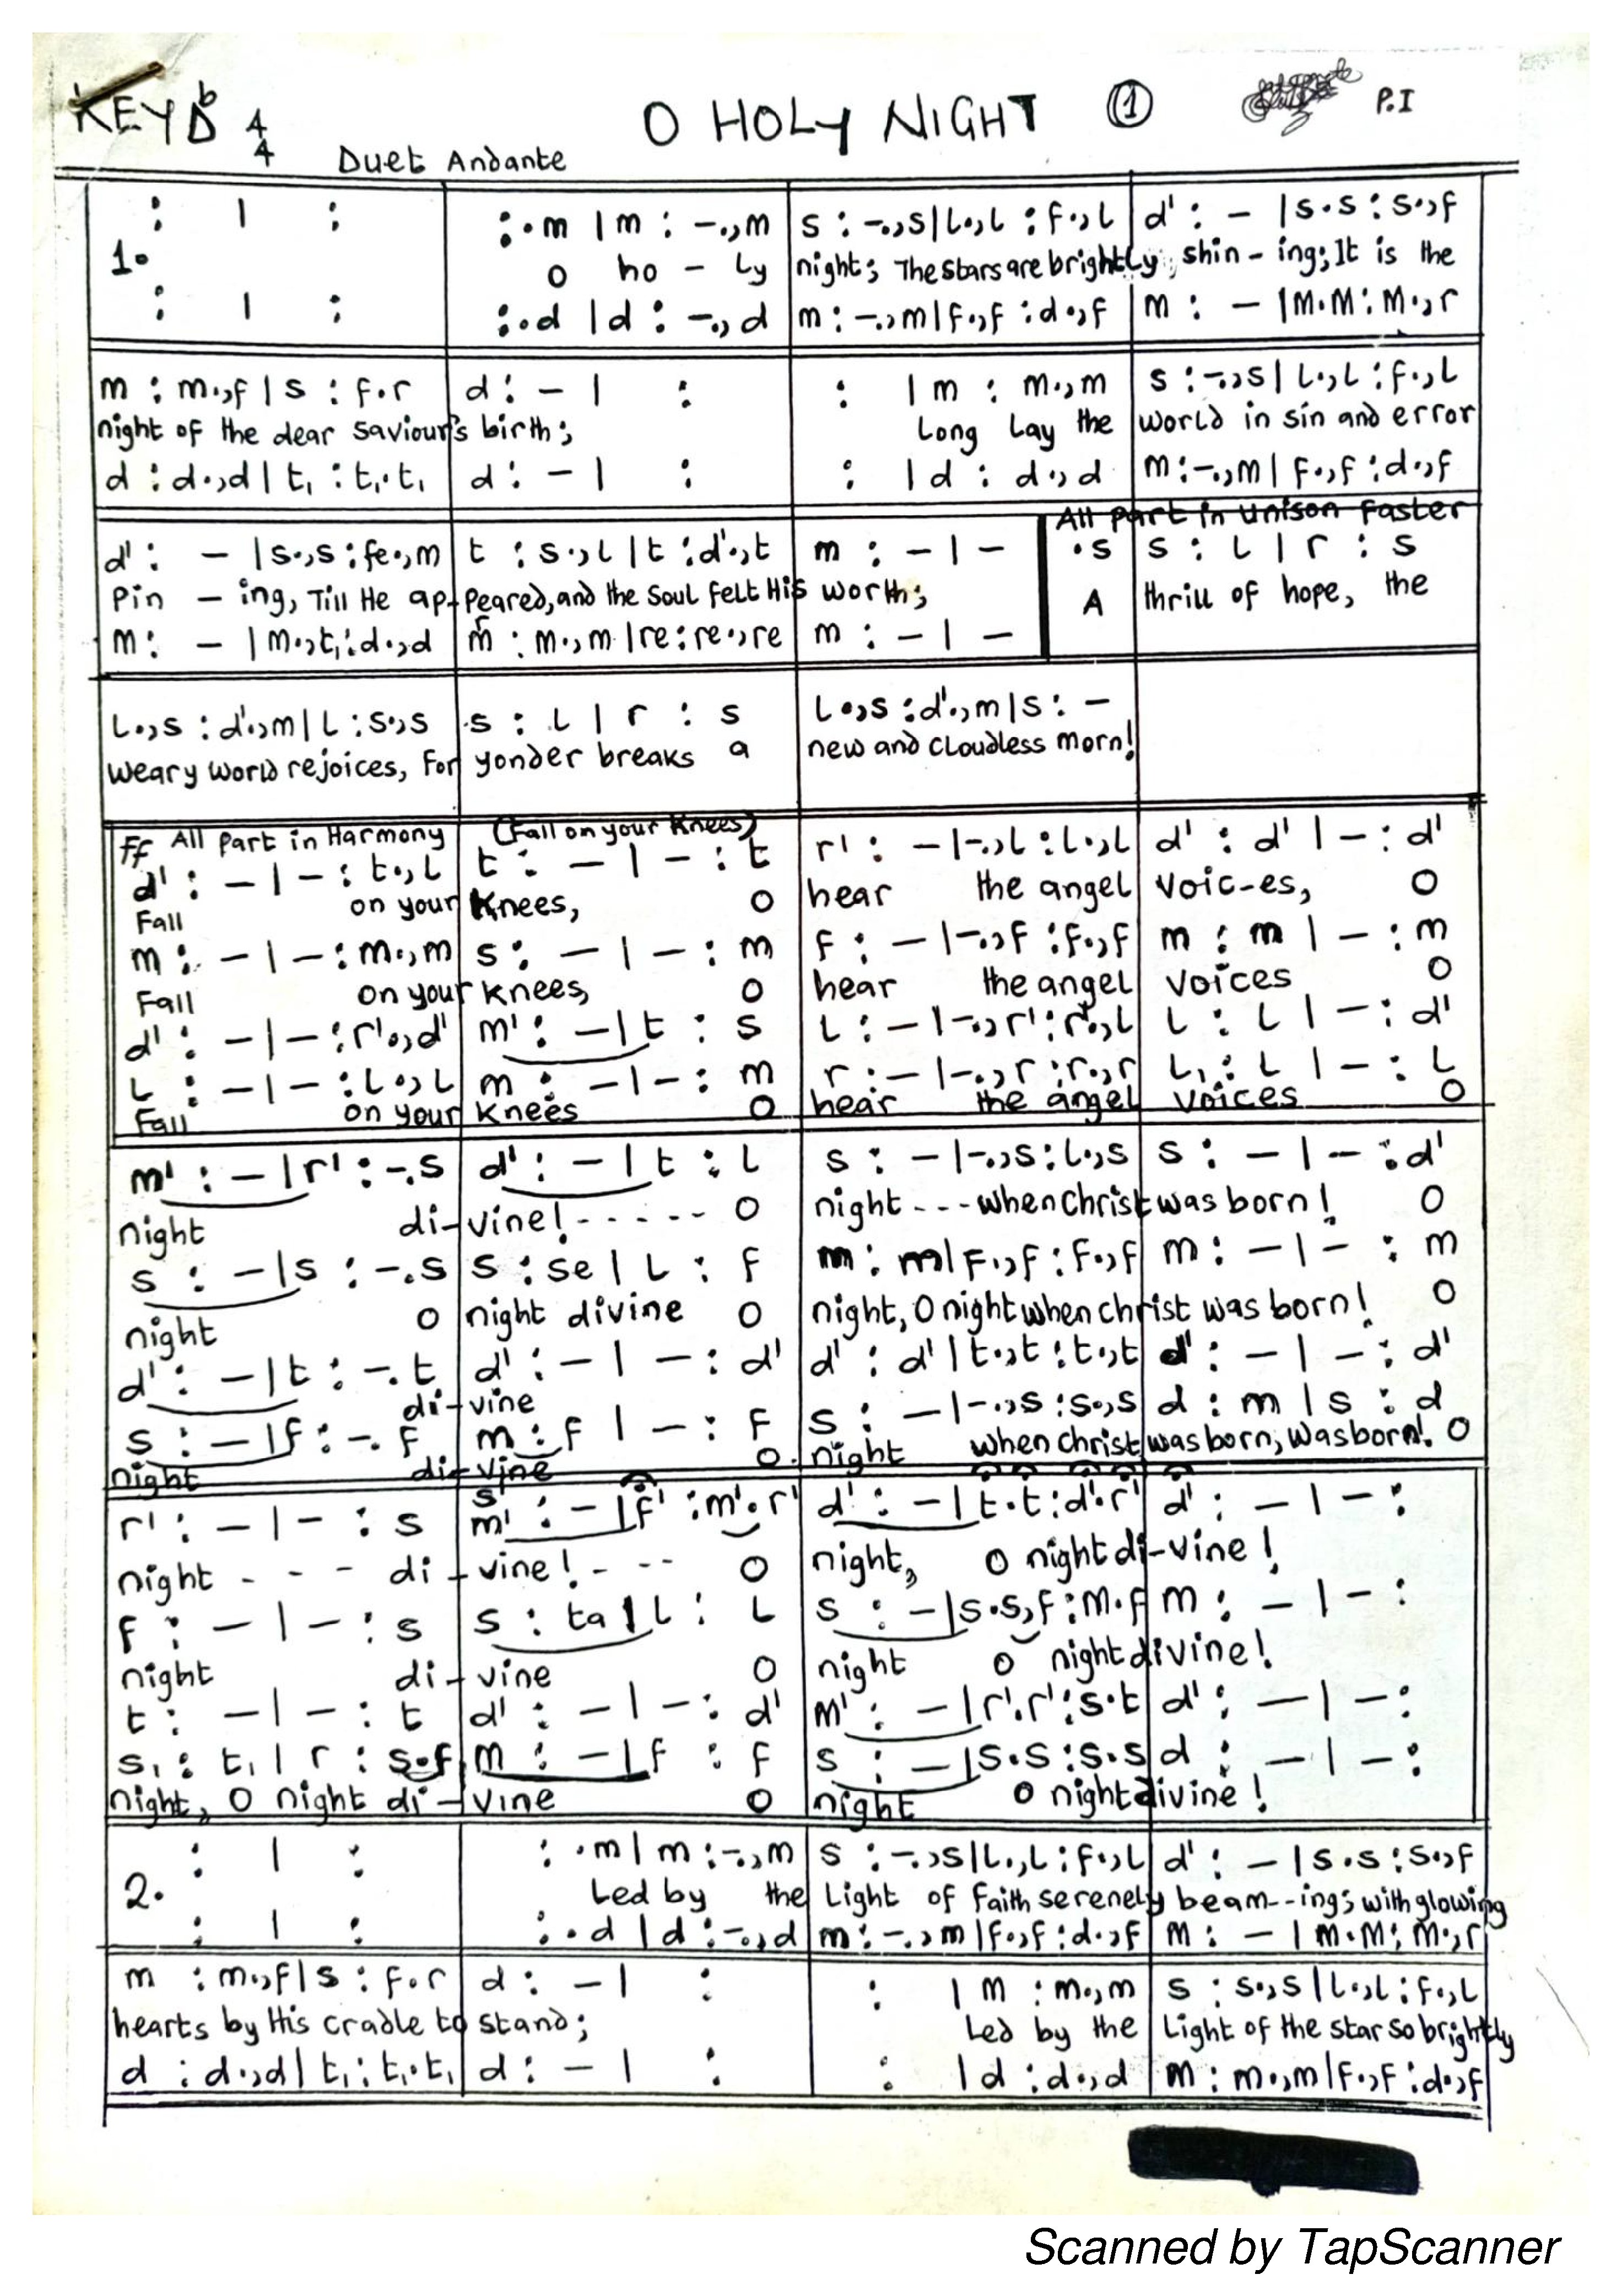 KEY Db 4/4 O HOLY NIGHT ① P.I
Duet Andante
: | : :.m | m : -.,m s : -.,s | l.,l : f.,l d' : - | s.s : s.,f
1. O ho - ly night; The stars are brightly, shin - ing; It is the
: | : :.d | d : -.,d m : -.,m | f.,f : d.,f m : - | m.m : m.,r
m : m.,f | s : f.r d : - | : : | m : m.,m s : -.,s | l.,l : f.,l
night of the dear saviour's birth; Long Lay the world in sin and error
d : d.,d | t, : t,.t, d : - | : : | d : d.,d m : -.,m | f.,f : d.,f
All Part in Unison Faster
d' : - | s.,s : fe.,m t : s.,l | t : d'.,t m : - | - .s s : l | r : s
Pin - ing, Till He ap-Peared, and the Soul felt His worth; A thrill of hope, the
m : - | m.,t, : d.,d m : m.,m | re : re.,re m : - | -
l.,s : d'.,m | l : s.,s s : l | r : s l.,s : d'.,m | s : -
weary world rejoices, For yonder breaks a new and cloudless morn!
ff All Part in Harmony (Fall on your Knees)
d' : - | - : t.,l t : - | - : t r' : - | -.,l : l.,l d' : d' | - : d'
Fall on your Knees, O hear the angel voic-es, O
m : - | - : m.,m s : - | - : m f : - | -.,f : f.,f m : m | - : m
Fall on your knees, O hear the angel voices O
d' : - | - : r'.,d' m' : - | t : s l : - | -.,r' : r'.,l l : l | - : d'
l : - | - : l.,l m : - | - : m r : - | -.,r : r.,r l, : l | - : l
Fall on your knees O hear the angel voices O
m' : - | r' : -.s d' : - | t : l s : - | -.,s : l.,s s : - | - : .d'
night di-vine! - - - - - O night - - - when Christ was born! O
s : - | s : -.s s : se | l : f m : m | f.,f : f.,f m : - | - : m
night O night divine O night, O night when christ was born! O
d' : - | t : -.t d' : - | - : d' d' : d' | t.,t : t.,t d' : - | - : d'
di-vine
s : - | f : -.f m : f | - : f s : - | -.,s : s.,s d : m | s : d
night di-vine O. night when christ was born, Was born! O
s'
r' : - | - : s m' : - | f' : m'.r' d' : - | t.t : d'.r' d' : - | - :
night - - - di-vine! - - - O night, O night di-vine!
f : - | - : s s : ta | l : l s : - | s.s,f : m.f m : - | - :
night di-vine O night O night divine!
t : - | - : t d' : - | - : d' m' : - | r'.r' : s.t d' : - | - :
s, : t, | r : s.f m : - | f : f s : - | s.s : s.s d : - | - :
night, O night di-vine O night O night divine!
: | : : .m | m : -.,m s : -.,s | l.,l : f.,l d' : - | s.s : s.,f
2. Led by the Light of Faith serenely beam--ing; with glowing
: | : : .d | d : -.,d m : -.,m | f.,f : d.,f m : - | m.m : m.,r
m : m.,f | s : f.r d : - | : : | m : m.,m s : s.,s | l.,l : f.,l
hearts by His cradle to stand; Led by the Light of the star so brightly
d : d.,d | t, : t,.t, d : - | : : | d : d.,d m : m.,m | f.,f : d.,f
Scanned by TapScanner